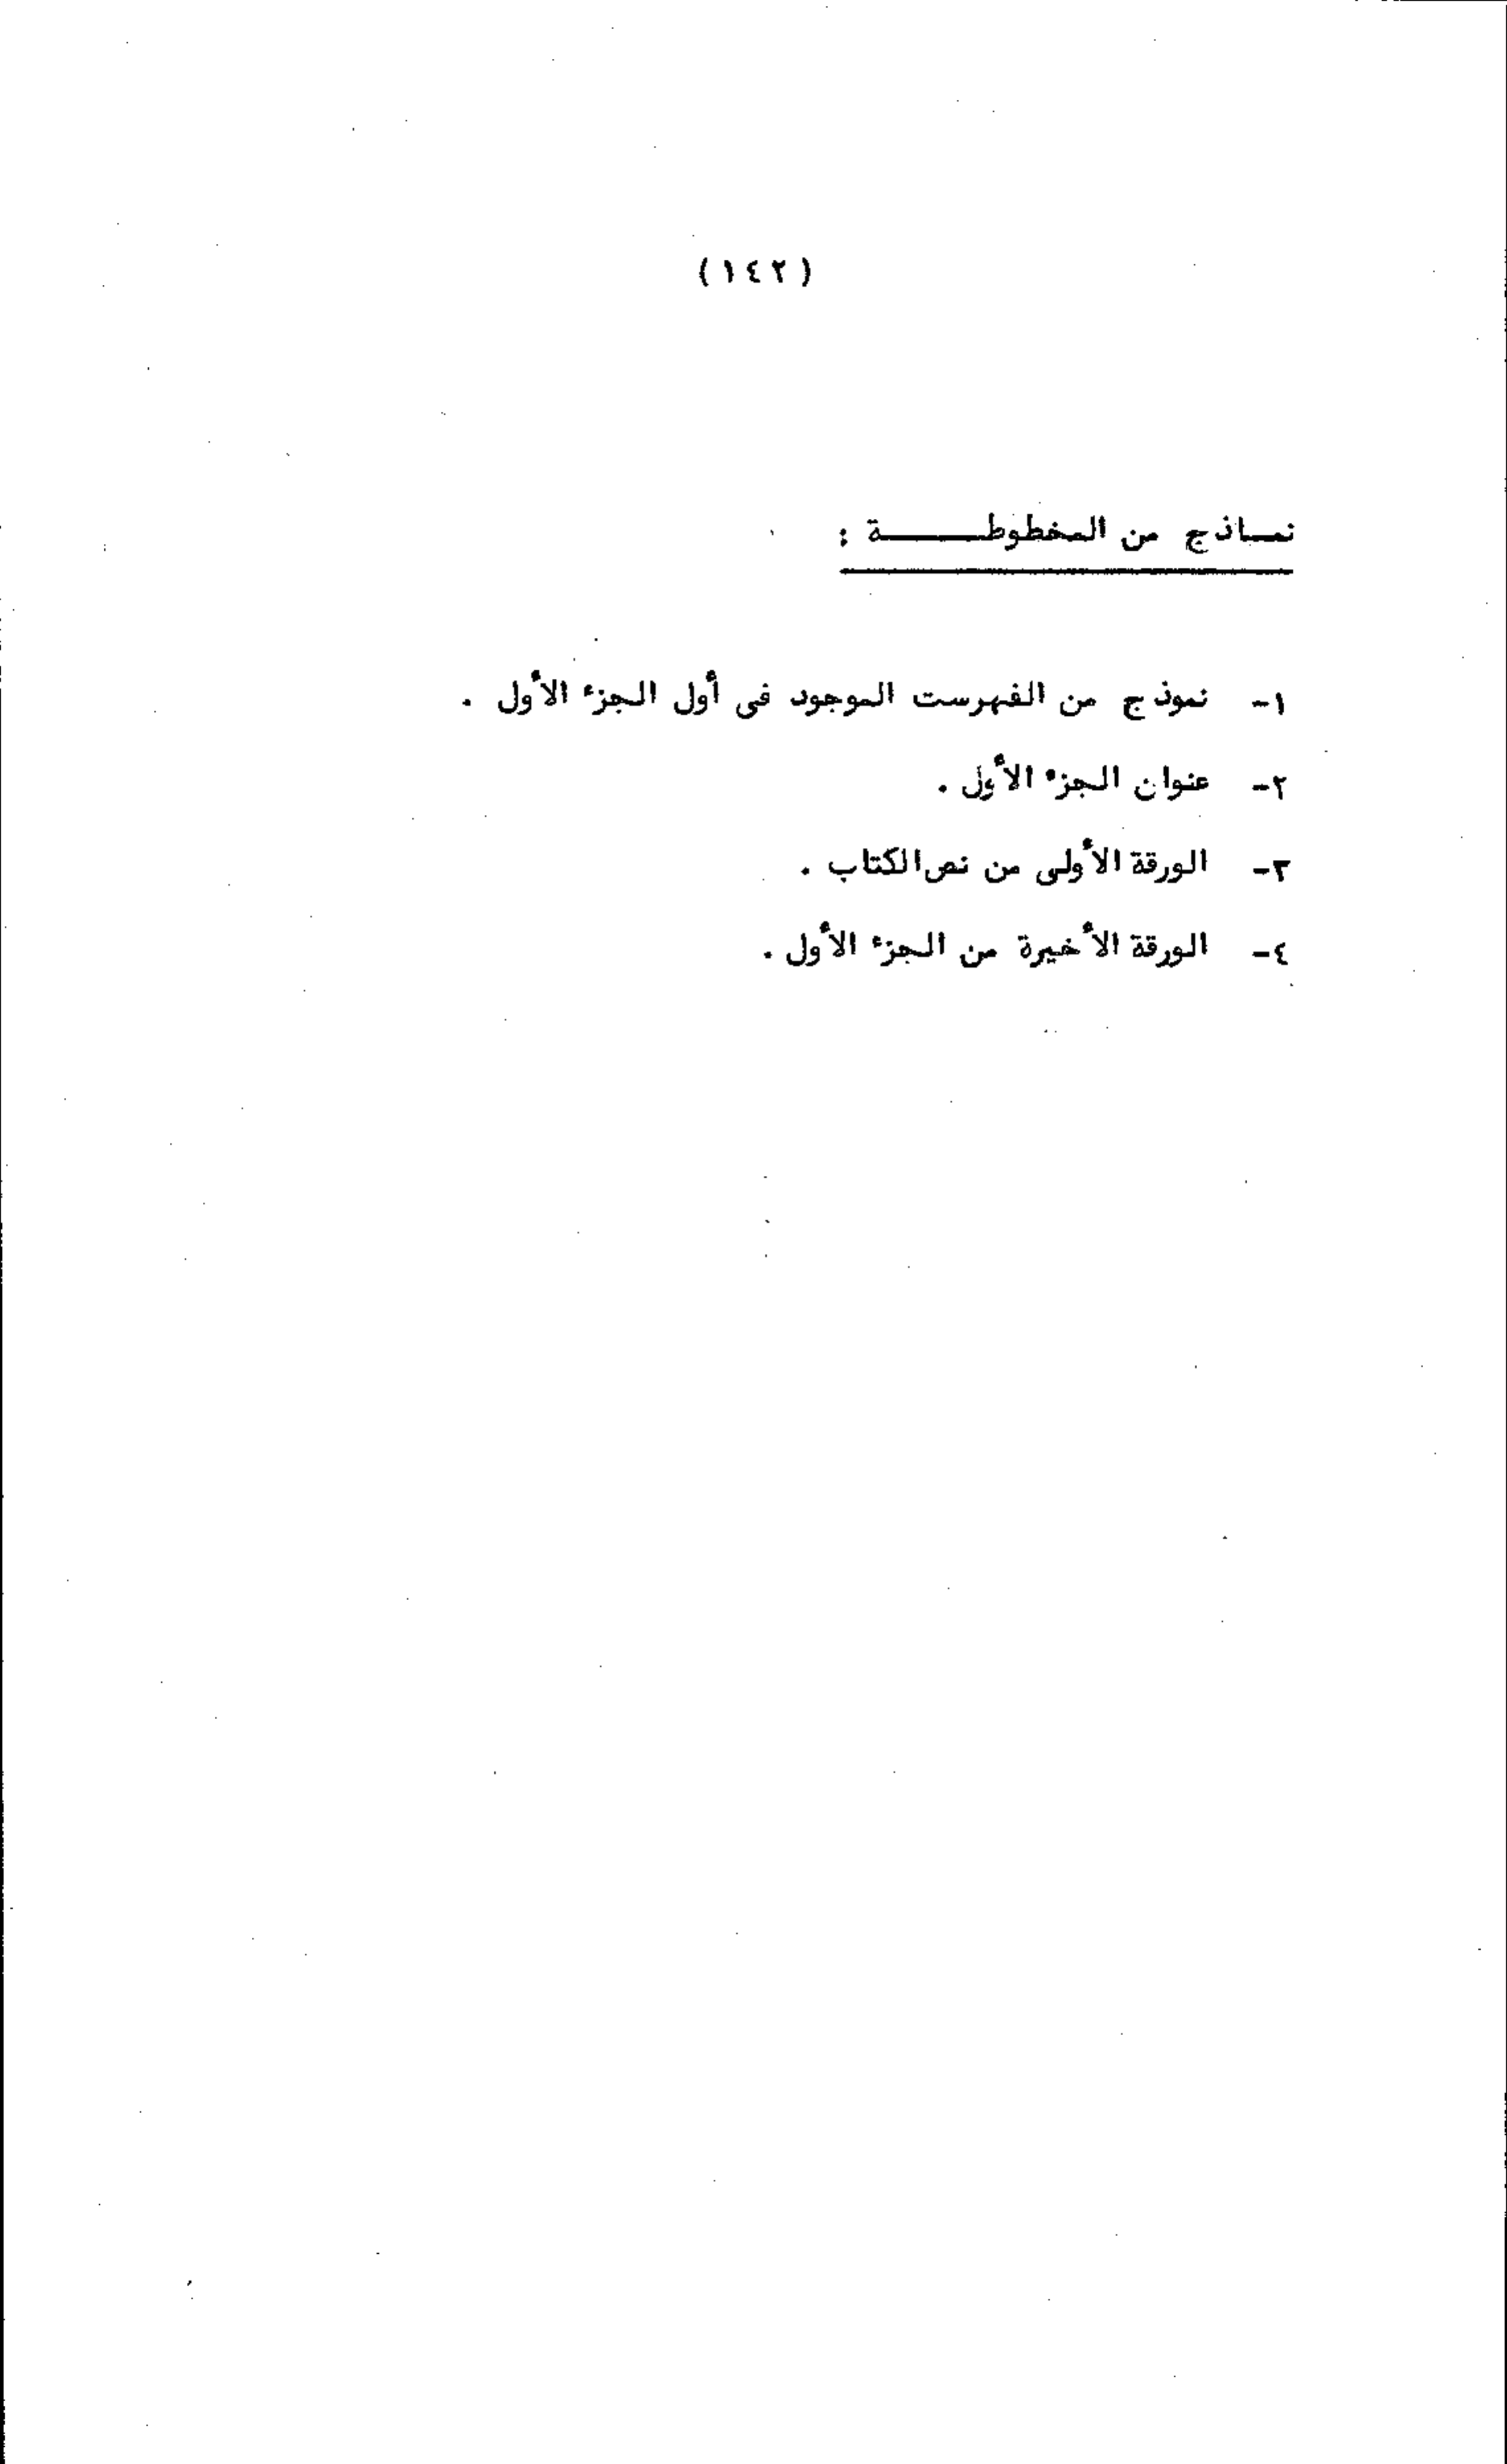 (١٤٢)
نمـاذج من المخطوطــــــة :
١- نموذج من الفهرست الموجود فى أول الجزء الأول .
٢- عنوان الجزء الأول .
٣- الورقة الأولى من نص الكتاب .
٤- الورقة الأخيرة من الجزء الأول .